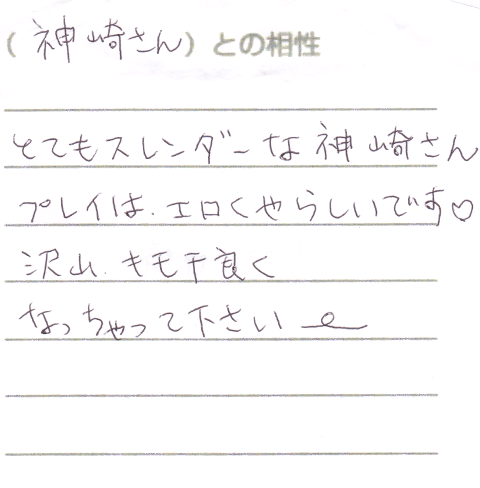 （神崎さん）との相性
とてもスレンダーな神崎さん
プレイは、エロくやらしいです♡
沢山、キモチ良く
なっちゃって下さい